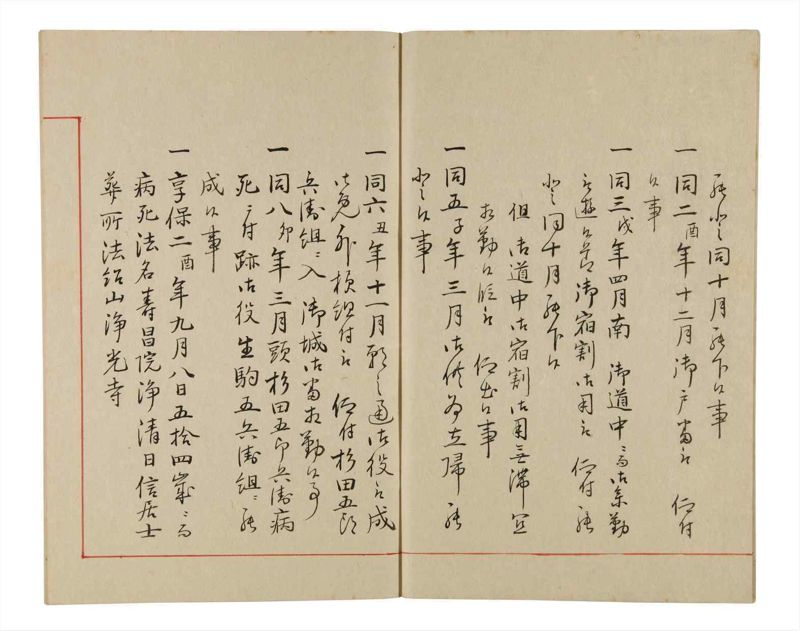 同十月罷下候事
一同二酉年十二月御戸当被 仰付
候事
一同三戌年四月南 御道中ニ而御参勤
被遊候節御宿割御用被 仰付罷
登同十月罷下候
但御道中御宿割御用無滞
相勤候段被 仰出候事
一同五子年三月御供為立帰罷
登候事
一同六丑年十一月願之通御役被成
御免 組付被 仰付杉田五郎
兵衛組ニ入 御城御当相勤候事
一同八卯年三月頭杉田五郎兵衛病
死ニ付跡御役生駒五兵衛組ニ罷
成候事
一享保二酉年九月八日五拾四歳ニ而
病死法名寿昌院浄清日信居士
葬所法 山浄光寺